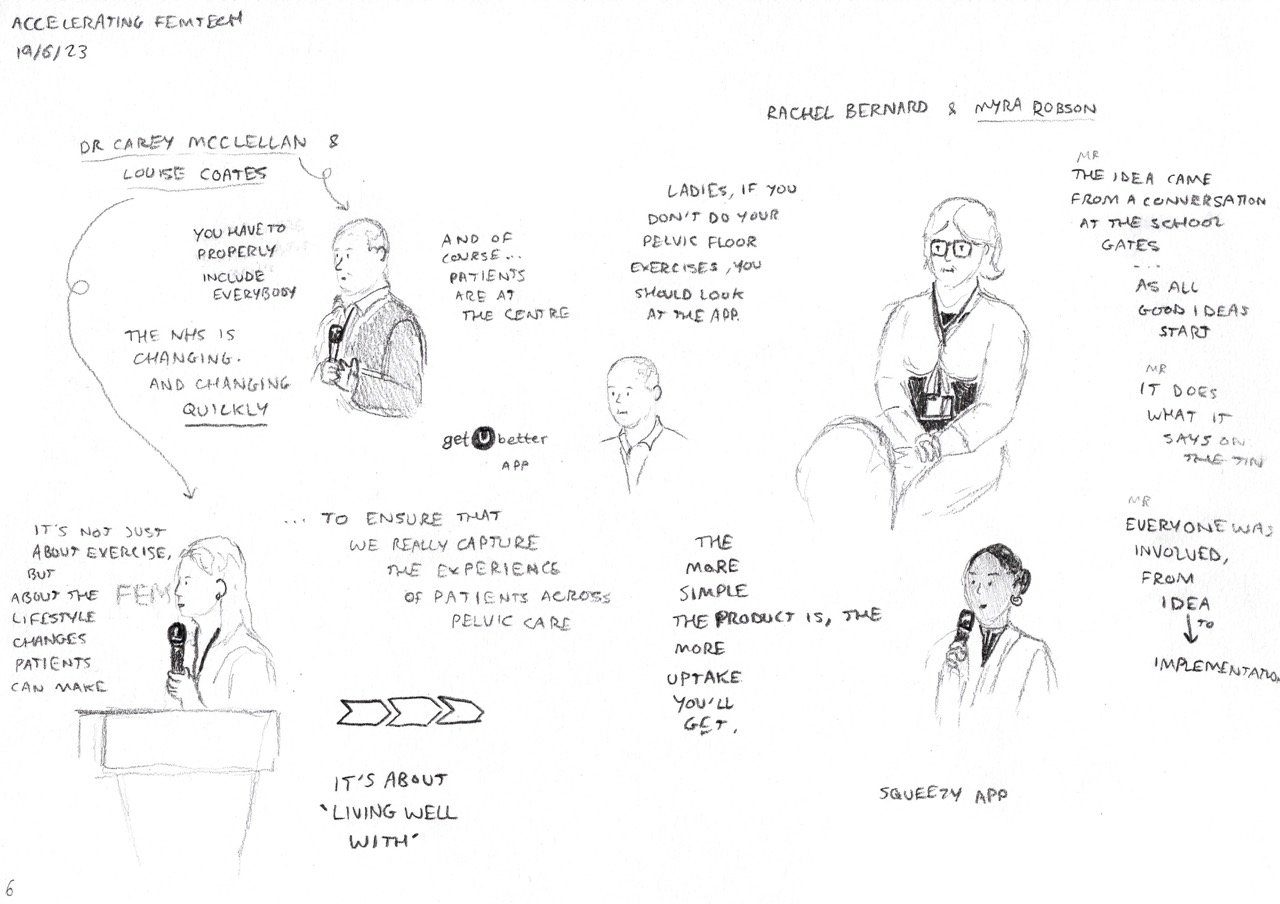 ACCELERATING FEMTECH
19/6/23
DR CAREY MCCLELLAN &
LOUISE COATES
YOU HAVE TO
PROPERLY
INCLUDE
EVERYBODY
THE NHS IS
CHANGING.
AND CHANGING
QUICKLY
AND OF
COURSE...
PATIENTS
ARE AT
THE CENTRE
getUbetter
APP
IT'S NOT JUST
ABOUT EXERCISE,
BUT
ABOUT THE
LIFESTYLE
CHANGES
PATIENTS
CAN MAKE
FEM
... TO ENSURE THAT
WE REALLY CAPTURE
THE EXPERIENCE
OF PATIENTS ACROSS
PELVIC CARE
IT'S ABOUT
'LIVING WELL
WITH'
RACHEL BERNARD & MYRA ROBSON
LADIES, IF YOU
DON'T DO YOUR
PELVIC FLOOR
EXERCISES, YOU
SHOULD LOOK
AT THE APP.
MR
THE IDEA CAME
FROM A CONVERSATION
AT THE SCHOOL
GATES
...
AS ALL
GOOD IDEAS
START
MR
IT DOES
WHAT IT
SAYS ON
THE TIN
MR
EVERYONE WAS
INVOLVED,
FROM
IDEA
TO
IMPLEMENTATION
THE
MORE
SIMPLE
THE PRODUCT IS, THE
MORE
UPTAKE
YOU'LL
GET.
SQUEEZY APP
6